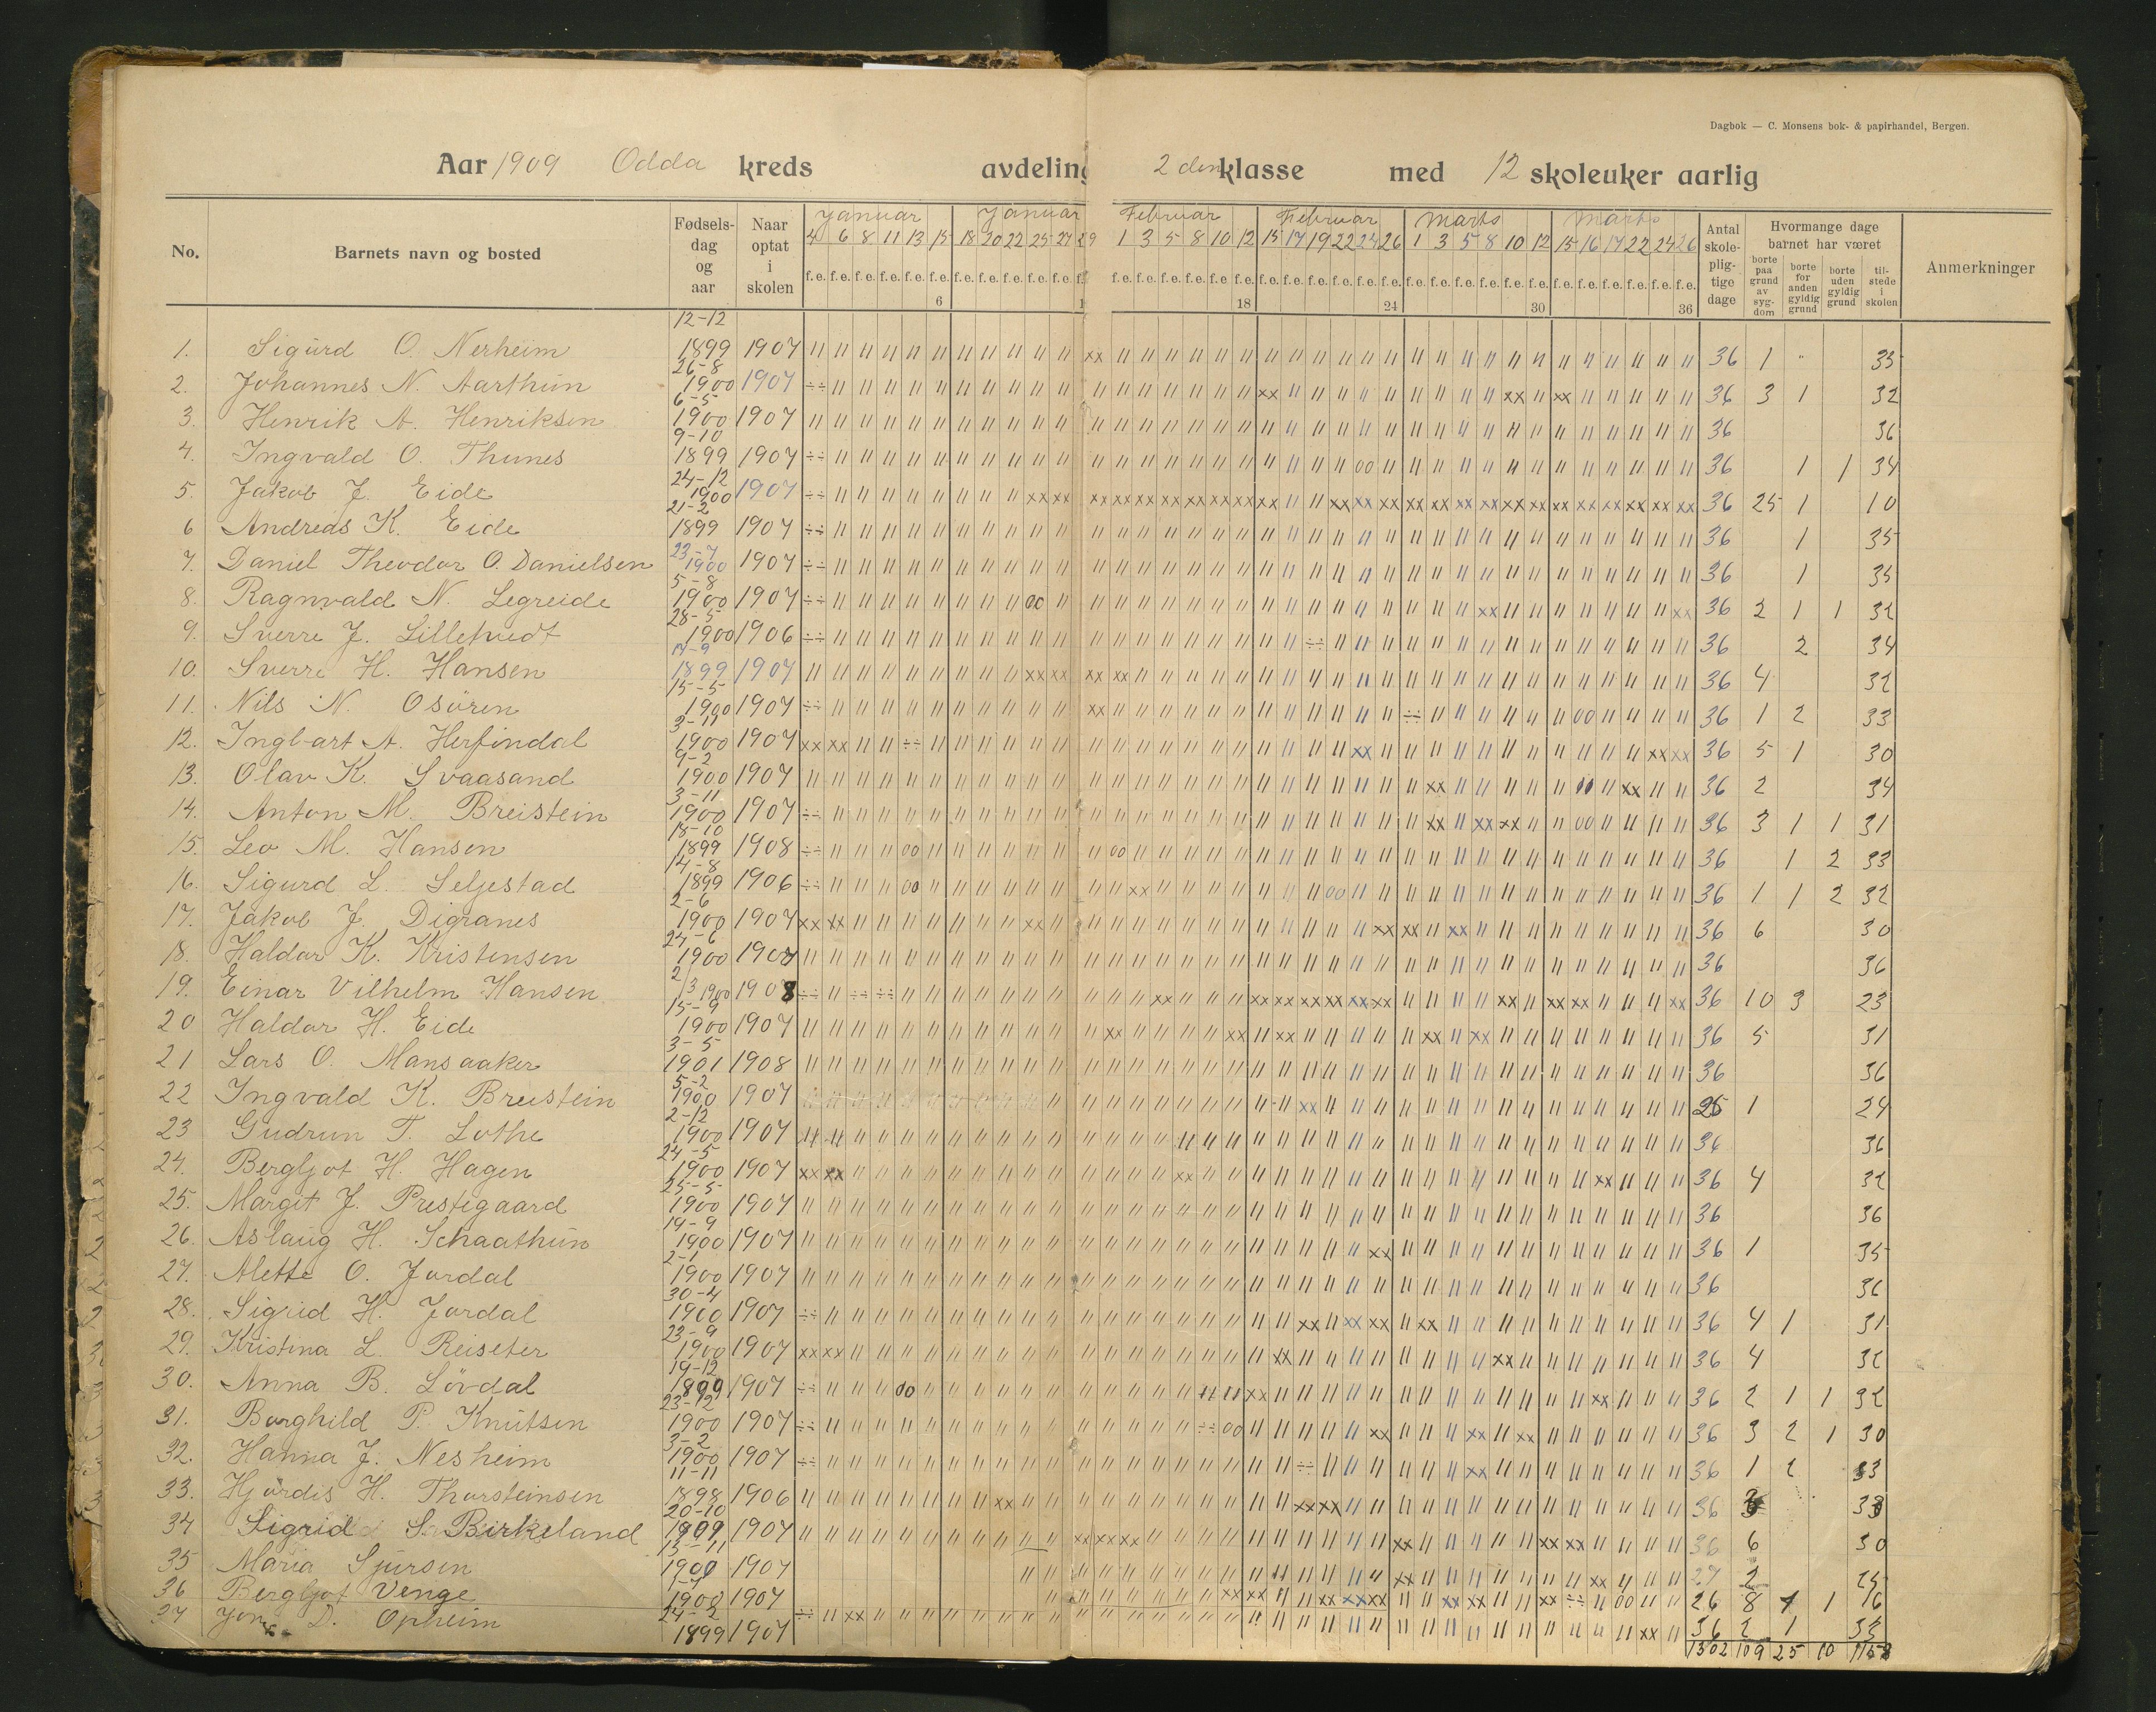 Dagbok — C. Monsens bok- & papirhandel, Bergen.
Aar 1909 Odda kreds avdeling 2 den klasse med 12 skoleuker aarlig
No. Barnets navn og bosted Fødselsdag og aar Naar optat i skolen Januar Januar Februar Februar Marts Marts Antal skolepligtige dage Hvormange dage barnet har været Anmerkninger
4 6 8 11 13 15 18 20 22 25 27 29 1 3 5 8 10 12 15 17 19 22 24 26 1 3 5 8 10 12 15 16 17 22 24 26
borte paa grund av sygdom borte for anden gyldig grund borte uden gyldig grund tilstede i skolen
6 18 24 30 36
1. Sigurd O. Nerheim 12-12 1899 1907 36 1 " 35
2. Johannes N. Aarthun 26-8 1900 1907 36 3 1 32
3. Henrik A. Henriksen 6-5 1900 1907 36 36
4. Ingvald O. Thunes 9-10 1899 1907 36 1 1 34
5. Jakob J. Eide 24-12 1900 1907 36 25 1 10
6 Andreas K. Eide 21-2 1899 1907 36 1 35
7. Daniel Theodor O. Danielsen 23-7 1900 1907 36 1 35
8. Ragnvald N. Legreide 5-8 1900 1907 36 2 1 1 32
9. Sverre J. Lilletvedt 28-5 1900 1906 36 2 34
10. Sverre H. Hansen 17-9 1899 1907 36 4 32
11. Nils N. Osüren 15-5 1900 1907 36 1 2 33
12. Ingbart A. Herfindal 3-11 1900 1907 36 5 1 30
13. Olav K. Svaasand 9-2 1900 1907 36 2 34
14. Anton M. Breistein 3-11 1900 1907 36 3 1 1 31
15. Leo M. Hansen 18-10 1899 1908 36 1 2 33
16. Sigurd L. Seljestad 14-8 1899 1906 36 1 1 2 32
17. Jakob J. Digranes 2-6 1900 1907 36 6 30
18. Haldor K. Kristensen 24-6 1900 1907 36 36
19. Einar Vilhelm Hansen 2/3 1900 1908 36 10 3 23
20 Haldor H. Eide 15-9 1900 1907 36 5 31
21 Lars O. Mansaaker 3-5 1901 1908 36 36
22 Ingvald K. Breistein 5-2 1900 1907 25 1 24
23 Gudrun T. Lothe 2-12 1900 1907 36 36
24. Bergljot H. Hagen 24-5 1900 1907 36 4 32
25. Margit J. Prestegaard 25-5 1900 1907 36 36
26. Aslaug H. Schaathun 19-9 1900 1907 36 1 35
27. Alette O. Jordal 2-1 1900 1907 36 36
28. Sigrid H. Jordal 30-4 1900 1907 36 4 1 31
29. Kristina L. Reiseter 23-9 1900 1907 36 4 32
30. Anna B. Lövdal 19-12 1899 1907 36 2 1 1 32
31. Borghild P. Knutsen 23-12 1900 1907 36 3 2 1 30
32. Hanna J. Nesheim 3-2 1900 1907 36 1 2 33
33. Hjördis H. Thorsteinsen 11-11 1898 1906 36 3 33
34 Sigrid S. Birkeland 20-10 1907 36 6 30
35 Maria Sjursen 13-11 1900 1907 27 2 25
36 Bergljot Venge 1900 1907 26 8 1 1 16
37 D. Opheim 24-2 1899 1907 36 2 1 33
1302 109 25 10 1158